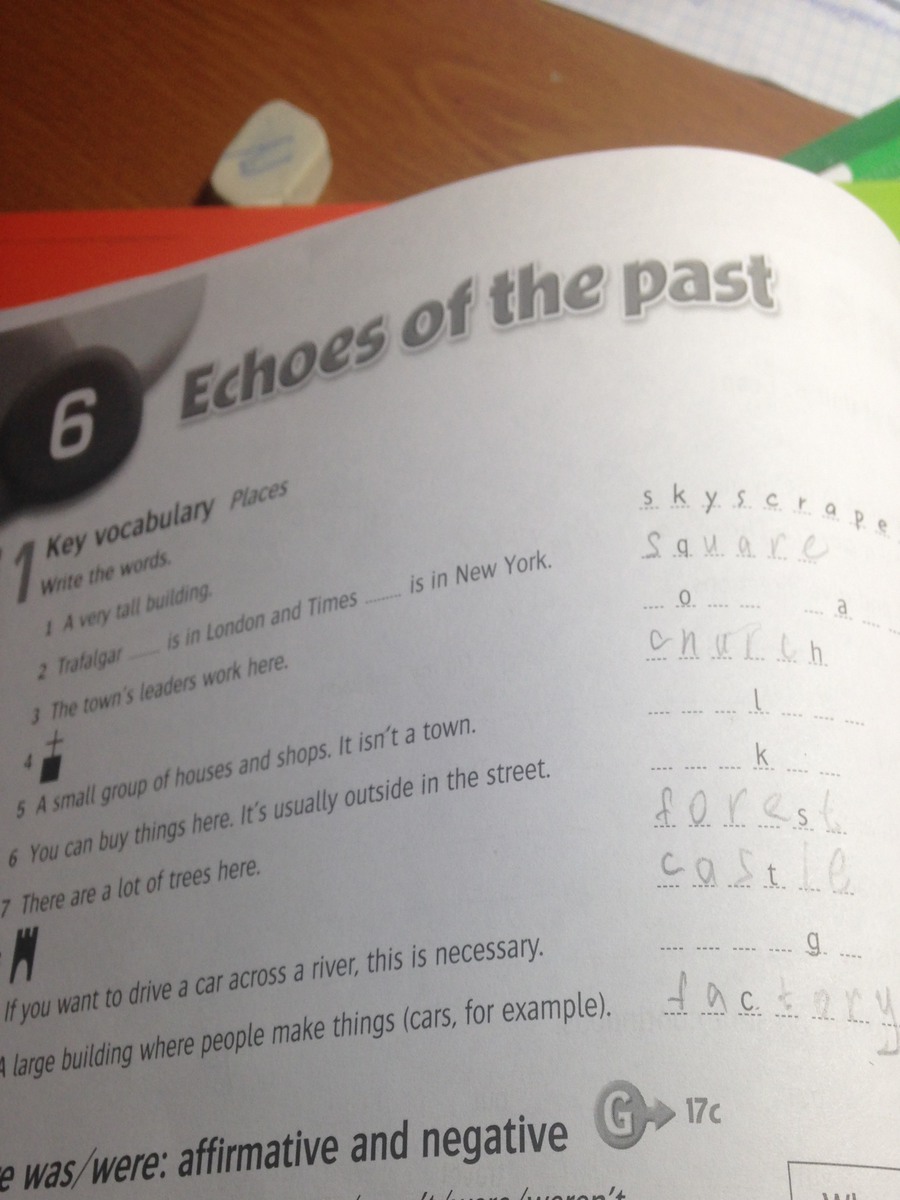 Echoes of the past
6
1 Key vocabulary Places
Write the words.
1 A very tall building. skyscrape
2 Trafalgar ____ is in London and Times ____ is in New York. square
3 The town's leaders work here. _o__ _a__
4 church
5 A small group of houses and shops. It isn't a town. ___l___
6 You can buy things here. It's usually outside in the street. ___k__
7 There are a lot of trees here. forest
castle
If you want to drive a car across a river, this is necessary. ____g_
A large building where people make things (cars, for example). factory
e was/were: affirmative and negative G 17c